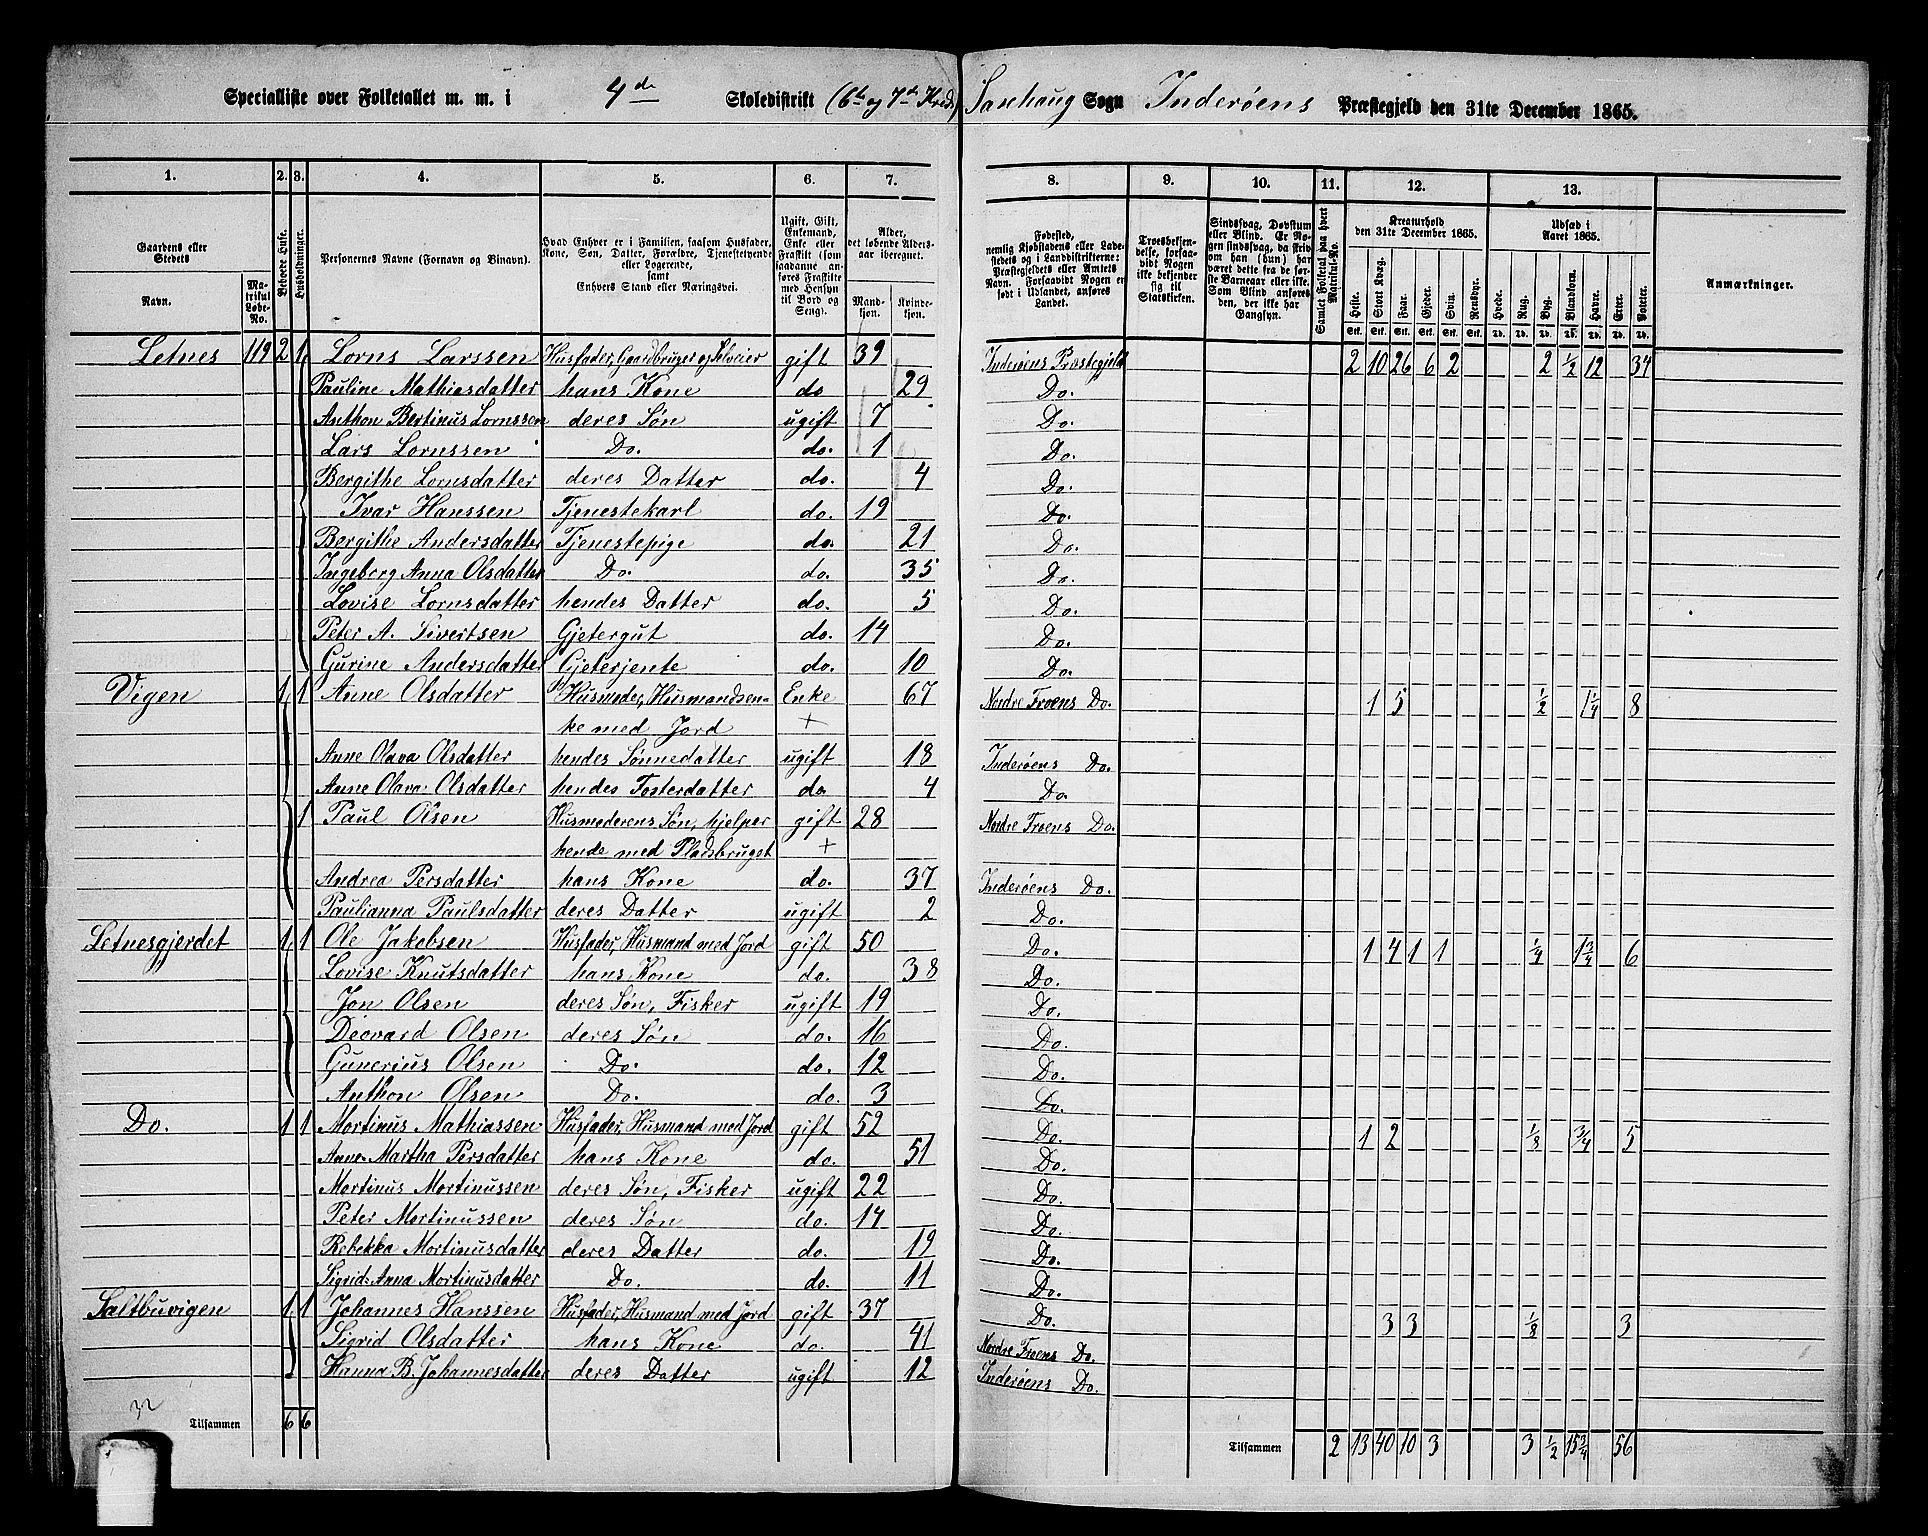 Specialliste over Folketallet m. m. i 4de Skoledistrikt (6te og 7de Kreds) Saxhaug Sogn Inderøens Præstegjeld den 31te December 1865.
1. 2. 3. 4. 5. 6. 7. 8. 9. 10. 11. 12. 13.
Gaardens eller Stedets
Navn.
Matrikul Løbe-No.
Beboede Huse.
Husholdninger.
Personernes Navne (Fornavn og Binavn).
Hvad Enhver er i Familien, saasom Husfader, Kone, Søn, Datter, Forældre, Tjenestetyende eller Logerende, samt Enhvers Stand eller Næringsvei.
Ugift, Gift, Enkemand, Enke eller Fraskilt (som saadanne anføres Fraskilte med Hensyn til Bord og Seng).
Alder, det løbende Alders-aar iberegnet.
Mandkjøn.
Kvindekjøn.
Fødested, nemlig Kjøbstadens eller Ladestedets og i Landdistrikterne: Præstegjeldets eller Amtets Navn. Forsaavidt Nogen er født i Udlandet, anføres Landet.
Troesbekjendelse, forsaavidt Nogen ikke bekjender sig til Statskirken.
Sindssvag, Døvstum eller Blind. Er Nogen sindssvag, da Privom han (hun) har været dette fra de første Barneaar eller ikke. Som Blind anføres den, der ikke har Gangsyn.
Samlet Folketal paa hvert Matrikul-No.
Kreaturhold den 31te December 1865.
Heste. Stort Kvæg. Faar. Gjeder. Svin. Rensdyr.
Stk. Stk. Stk. Stk. Stk. Stk.
Udsæd i Aaret 1865.
Hvede. Rug. Byg. Blandkorn. Havre. Erter. Poteter.
Td. Td. Td. Td. Td. Td. Td.
Anmærkninger.
Letnes 119 2 1 Lorns Larssen Husfader, Gaardbruger og Selveier gift 39 Inderøens Præstegjeld 2 10 26 6 2 2 1/2 12 34
Pauline Mathiasdatter hans Kone do 29 Do.
Anthon Bertinus Lornssen deres Søn ugift 7 Do.
Lars Lornssen Do. do. 1 Do.
Bergithe Lornsdatter deres Datter do. 4 Do.
Ivar Hanssen Tjenestekarl do. 19 Do.
Bergithe Andersdatter Tjenestepige do. 21 Do.
Ingeborg Anna Olsdatter Do. do. 35 Do.
Lovise Lornsdatter hendes Datter do. 5 Do.
Peter A. Sivertsen Gjetergut do. 14 Do.
Gurine Andersdatter Gjeterjente do. 10 Do.
Vigen 1 1 Anne Olsdatter Husmoder, Husmandsen- Enke 67 Nordre Froens Do. 1 5 1/2 1 1/4 8
ke med Jord +
Anne Olava Olsdatter hendes Sønnedatter ugift 18 Inderøens Do.
Anne Olava Olsdatter hendes Fosterdatter do. 4 Do.
1 Paul Olsen Husmoderens Søn, hjelper gift 28 Nordre Froens Do.
hende med Pladsbruget +
Andrea Persdatter hans Kone do. 37 Inderøens Do.
Paulianna Paulsdatter deres Datter ugift 2 Do.
Letnesgjerdet 1 1 Ole Jakobsen Husfader, Husmand med Jord gift 50 Do. 1 4 1 1 1/4 1 3/4 6
Lovise Knutsdatter hans Kone do. 38 Do.
Jon Olsen deres Søn, Fisker ugift 19 Do.
Deovard Olsen deres Søn do. 16 Do.
Gunerius Olsen Do. do. 12 Do.
Anthon Olsen Do. do. 3 Do.
Do. 1 1 Mortinus Mathiassen Husfader, Husmand med Jord gift 52 Do. 1 2 1/8 3/4 5
Anne Martha Persdatter hans Kone do. 51 Do.
Mortinus Mortinussen deres Søn, Fisker ugift 22 Do.
Peter Mortinussen deres Søn do. 14 Do.
Rebekka Mortinusdatter deres Datter do. 19 Do.
Sigrid Anna Mortinusdatter Do. do. 11 Do.
Saltbuvigen 1 1 Johannes Hanssen Husfader, Husmand med Jord gift 37 Do. 3 3 1/8 3
Sigrid Olsdatter hans Kone do. 41 Nordre Froens Do.
Hanna B. Johannesdatter deres Datter ugift 12 Inderøens Do.
32
Tilsammen 6 6 Tilsammen 2 13 40 10 3 3 1/2 15 3/4 56